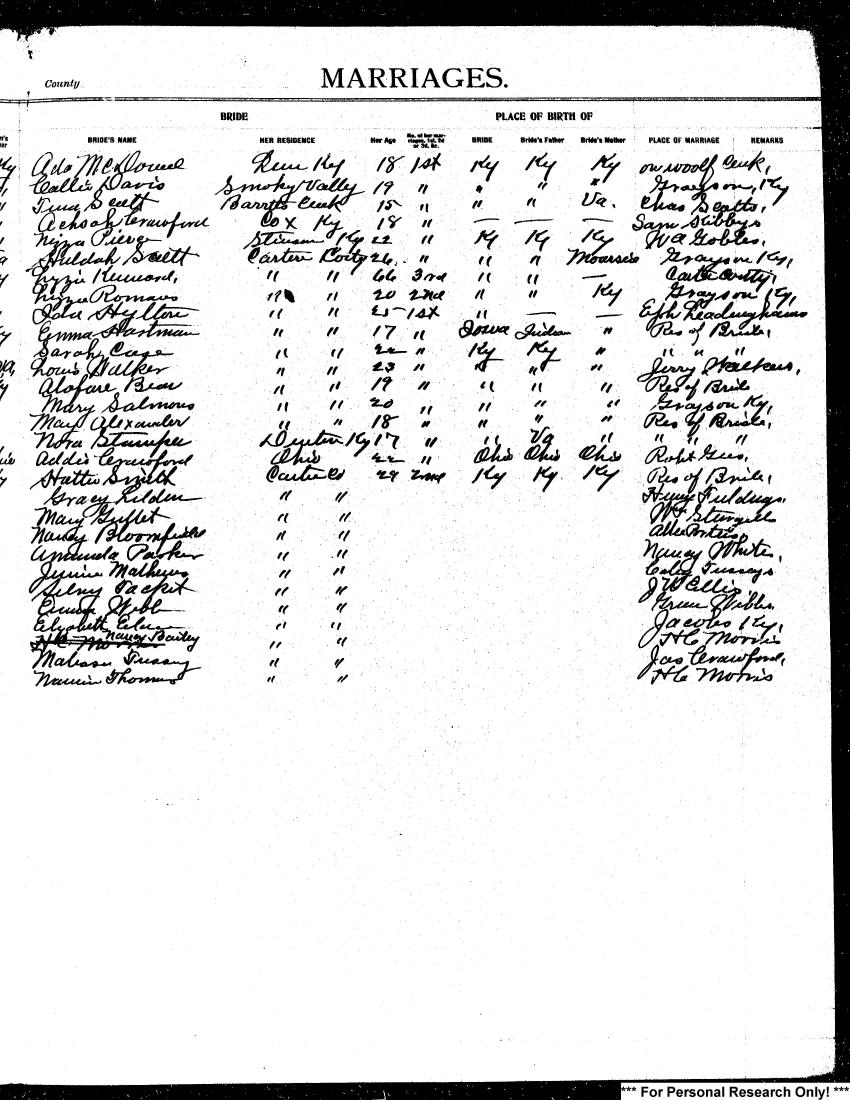 County MARRIAGES.
BRIDE PLACE OF BIRTH OF
BRIDE'S NAME HER RESIDENCE Her Age No. of her marriages, 1st, 2d or 3d, &c. BRIDE Bride's Father Bride's Mother PLACE OF MARRIAGE REMARKS
Ada McDowell Ky 18 1st Ky Ky Ky on woolf Creek,
Callie Davis Smoky Valley 19 " " " " Grayson, Ky
Tina Scott Barretts Creek 15 " " " Va. Chas Scotts,
Achsah Crawford Cox Ky 18 " — — — Sam Stibbys
Pierce Stinson Ky 22 " Ky Ky Ky W A Gobles,
Huldah Scott Carter Co Ky 26, " " " Grayson Ky,
Lizzie " " 66 3rd " " — Carter County,
Lizzie Romans " " 20 2nd " " Ky Grayson Ky,
Ida Hylton " " 25 1st " — — Eph Leadinghams
Emma Hartman " " 17 " Iowa Indian " Res of Bride,
Sarah Cage " " 22 " Ky Ky " " " "
Louis Walker " " 23 " " " " Jerry Walkers,
Bear " " 19 " " " " Res of Bride
Mary Salmons " " 20 " " " " Grayson Ky,
May Alexander " " 18 " " " " Res of Bride,
Nora Stamper Denton Ky 17 " " Va " " " "
Addie Crawford Ohio 22 " Ohio Ohio Ohio Robt
Hattie Smith Carter Co 29 2nd Ky Ky Ky Res of Bride,
Gracy " " Henry Fieldings,
Mary " " Wm Sturgill
Nancy Bloomfield " "
Amanda Parker " " Nancy White,
Jennie Mathews " " Tusseys
Tackit " " J W Ellis
Emma Webb " " Green Webbs
Elizabeth " " Jacobs Ky,
Nancy Bailey " " H C Morris
Malissa Tussey " " Jas Crawford,
Nannie Thomas " " H C Morris
*** For Personal Research Only! ***